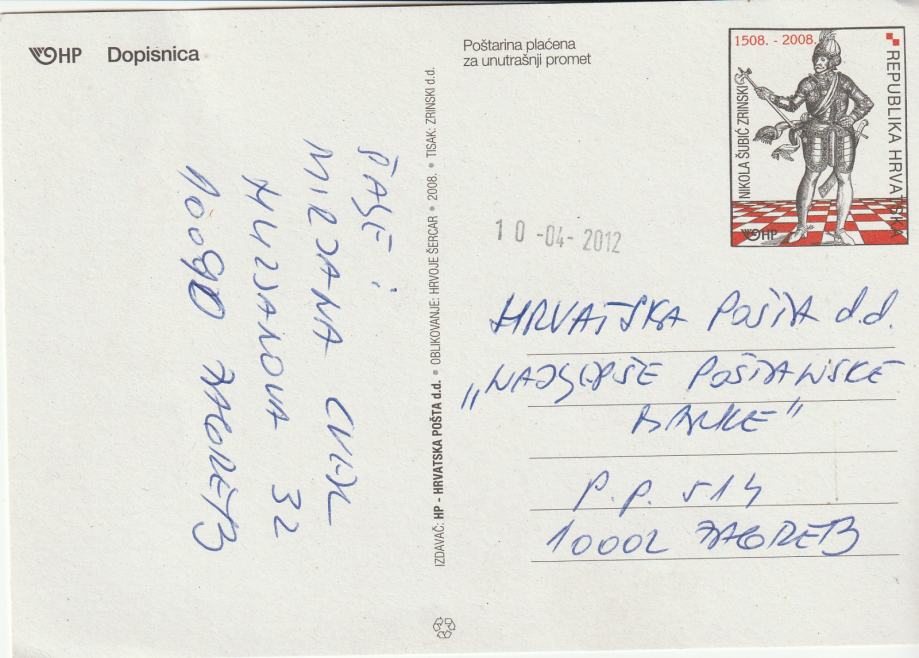 HP Dopisnica
Poštarina plaćena
za unutrašnji promet
1508. - 2008.
NIKOLA ŠUBIĆ ZRINSKI
REPUBLIKA HRVATSKA
HP
10 -04- 2012
HRVATSKA POŠTA d.d.
„NAJLJEPŠE POŠTANSKE
MARKE"
P.P. 514
10002 ZAGREB
IZDAVAČ: HP - HRVATSKA POŠTA d.d. • OBLIKOVANJE: HRVOJE ŠERCAR • 2008. • TISAK: ZRINSKI d.d.
ŠALJE:
MIRJANA
32
10090 ZAGREB